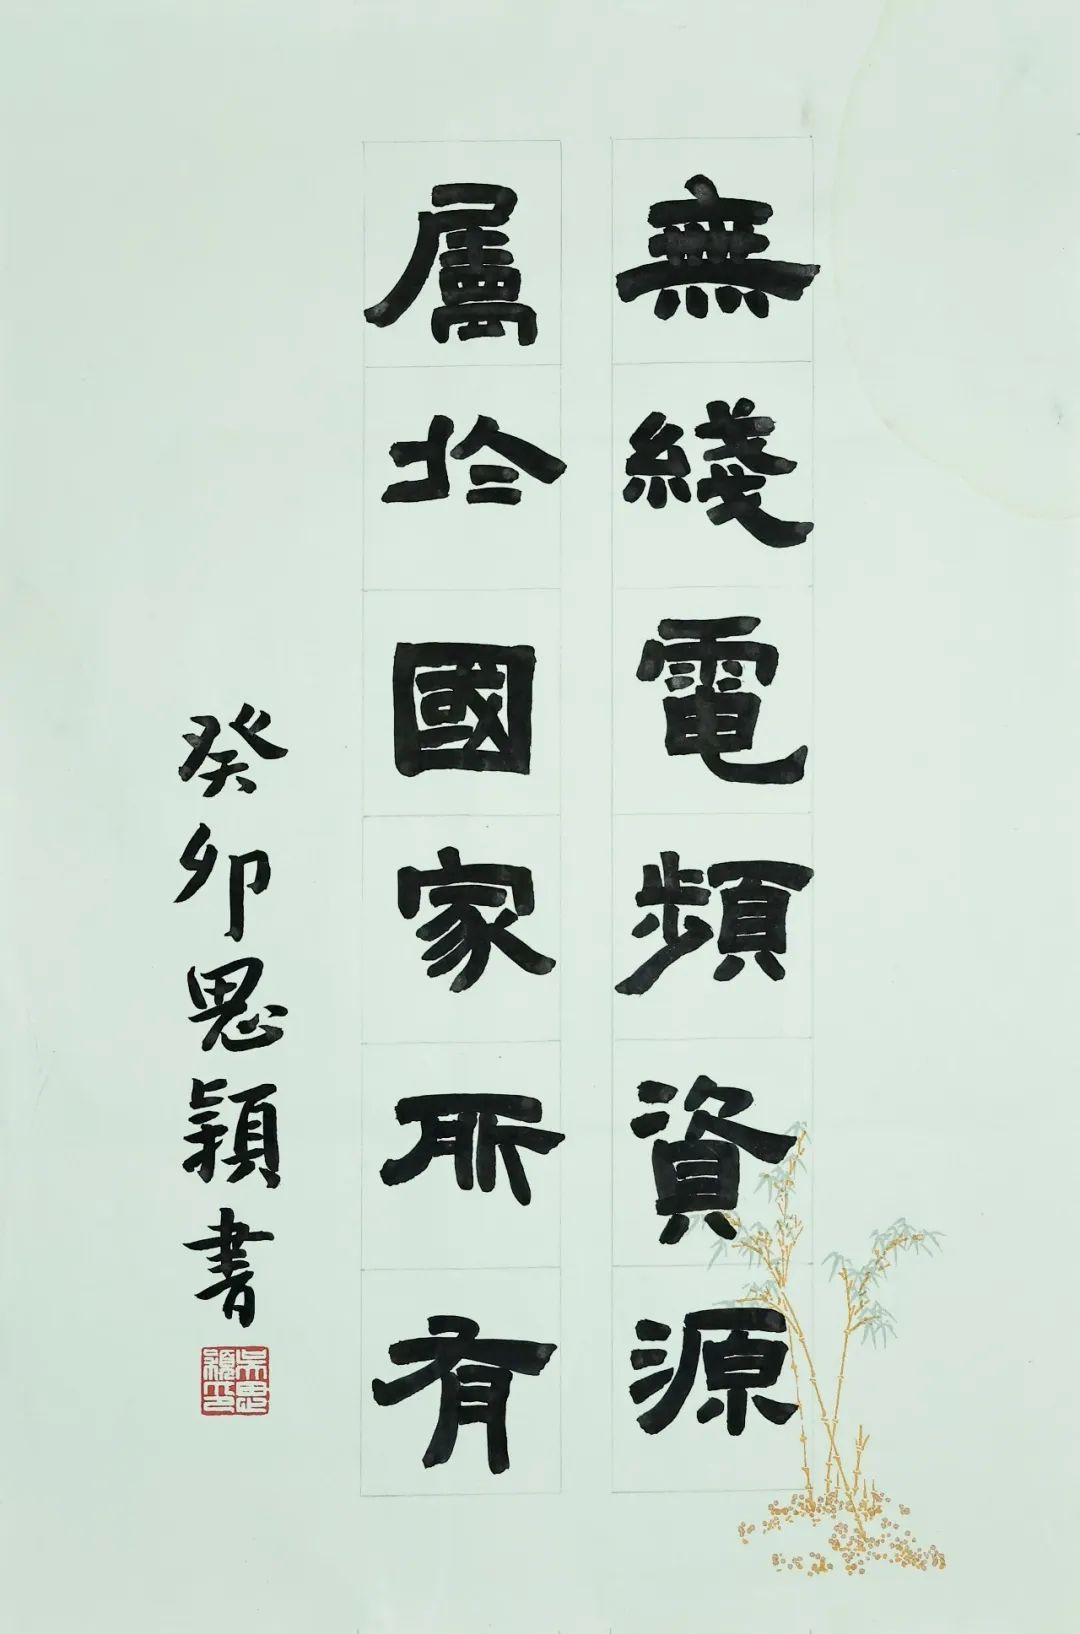 無綫電頻資源
屬於國家所有
癸卯思穎書
吳思穎印